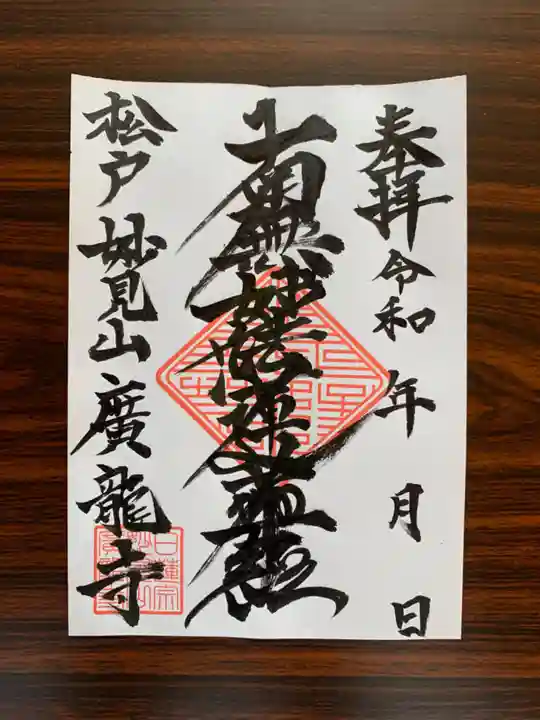 奉拝 令和 年 月 日
南無妙法蓮華経
松戸 妙見山 廣龍寺
日蓮宗